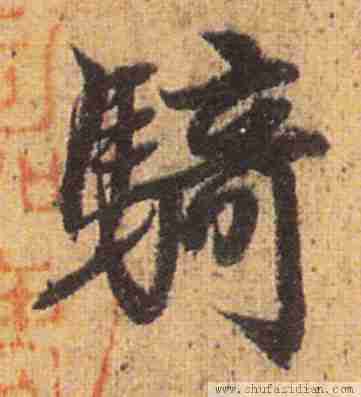 騎
www.shufazidian.com